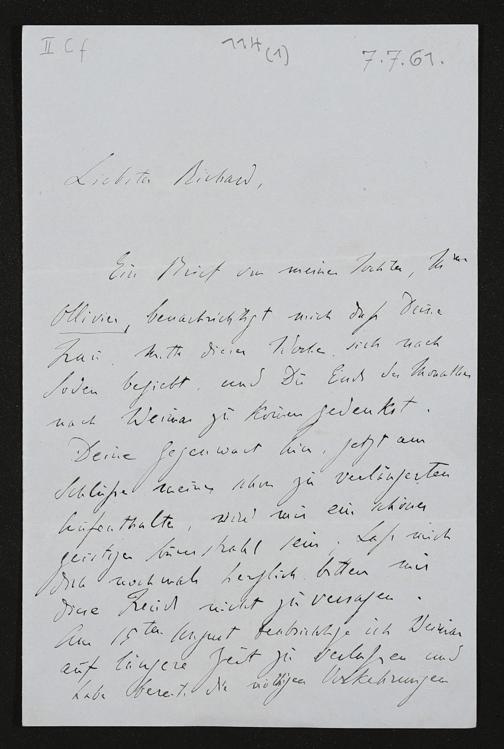 II Cf
114 (1)
7.7.61.
Liebster Richard,
Ein Brief von meiner Tochter, Me
Ollivier, benachrichtigt mich daß Deine
Frau, Mitte dieser Woche, sich nach
Soden begiebt, und Du Ende des Monathes
nach Weimar zu kommen gedenkst.
Deine Gegenwart hier, jetzt am
Schluße meines schon zu verlängerten
Aufenthaltes, wird mir ein schöner
geistiger sein. Laß mich
Dich nochmals herzlich bitten mir
diese Freude nicht zu versagen.
Am 15ten August beabsichtige ich Weimar
auf längere Zeit zu verlassen und
habe bereits die nöthigen Vorkehrungen